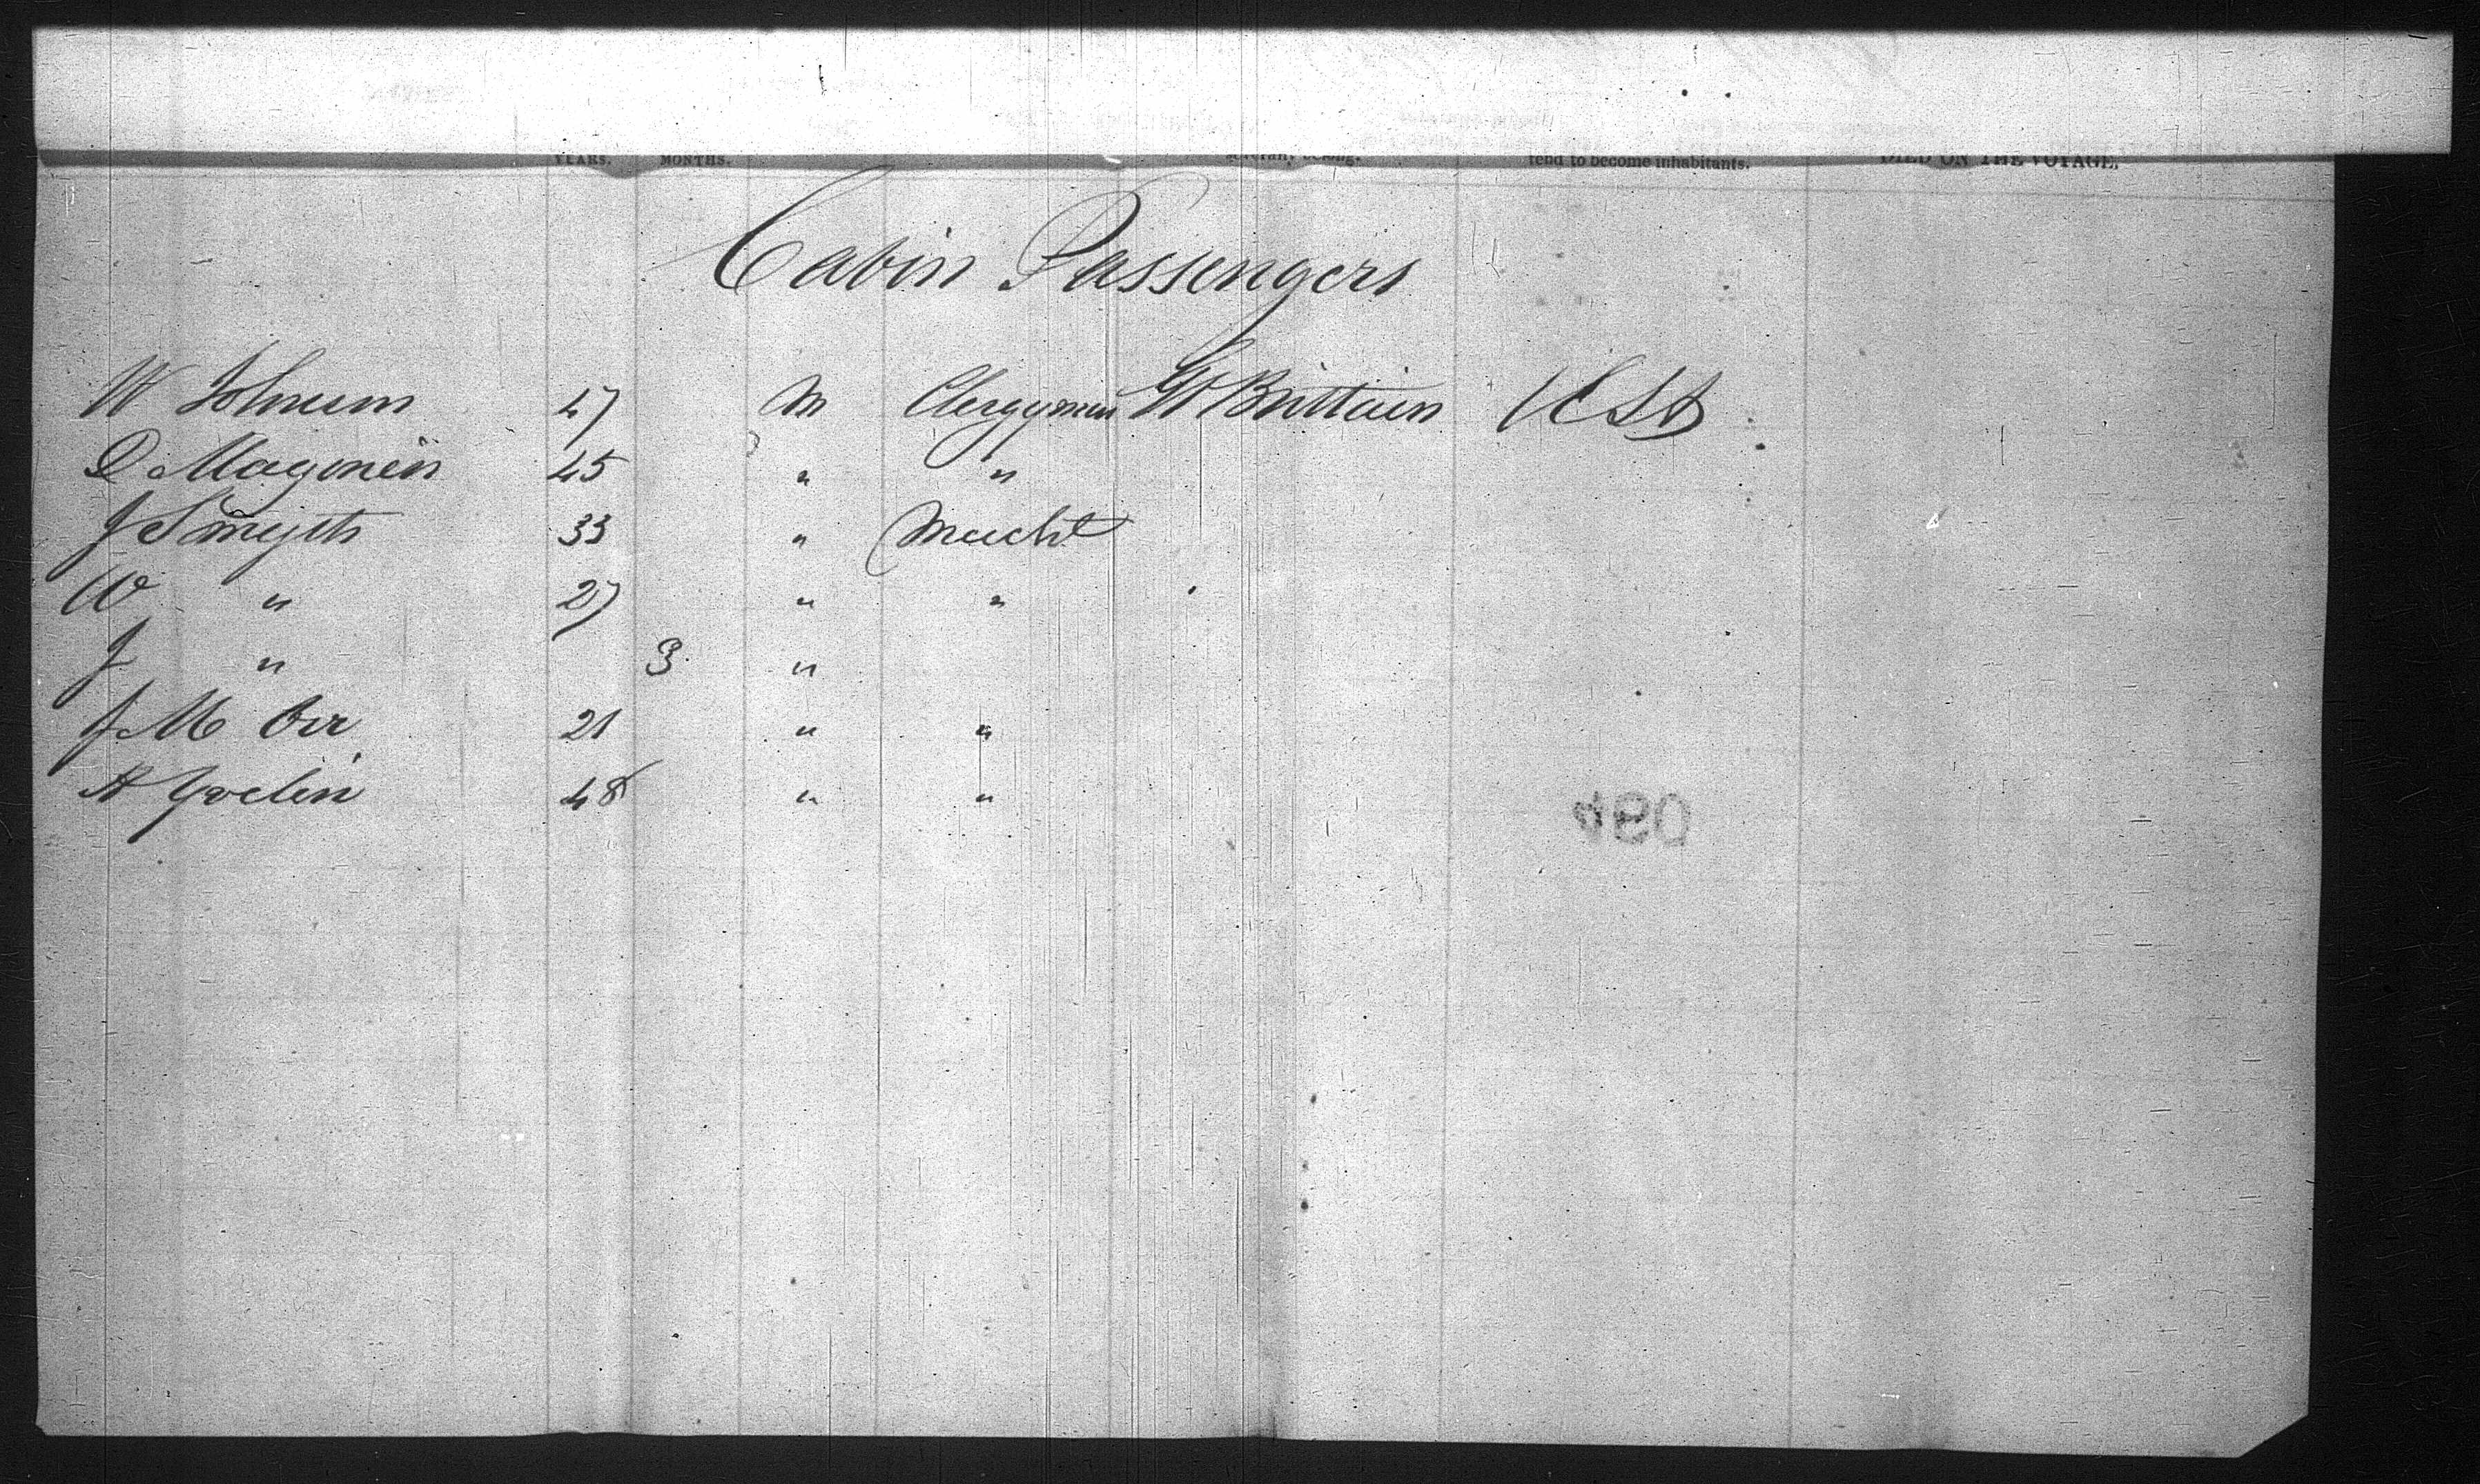 YEARS. MONTHS. severally belong. tend to become inhabitants. DIED ON THE VOYAGE,
Cabin Passengers
W Johnson 47 M Clergyman Gt Brittain USA
D Magineis 45 " "
J Smyth 33 " Mercht
W " 27 " "
J " 3 "
J. M Orr 21 " "
A 48 " "